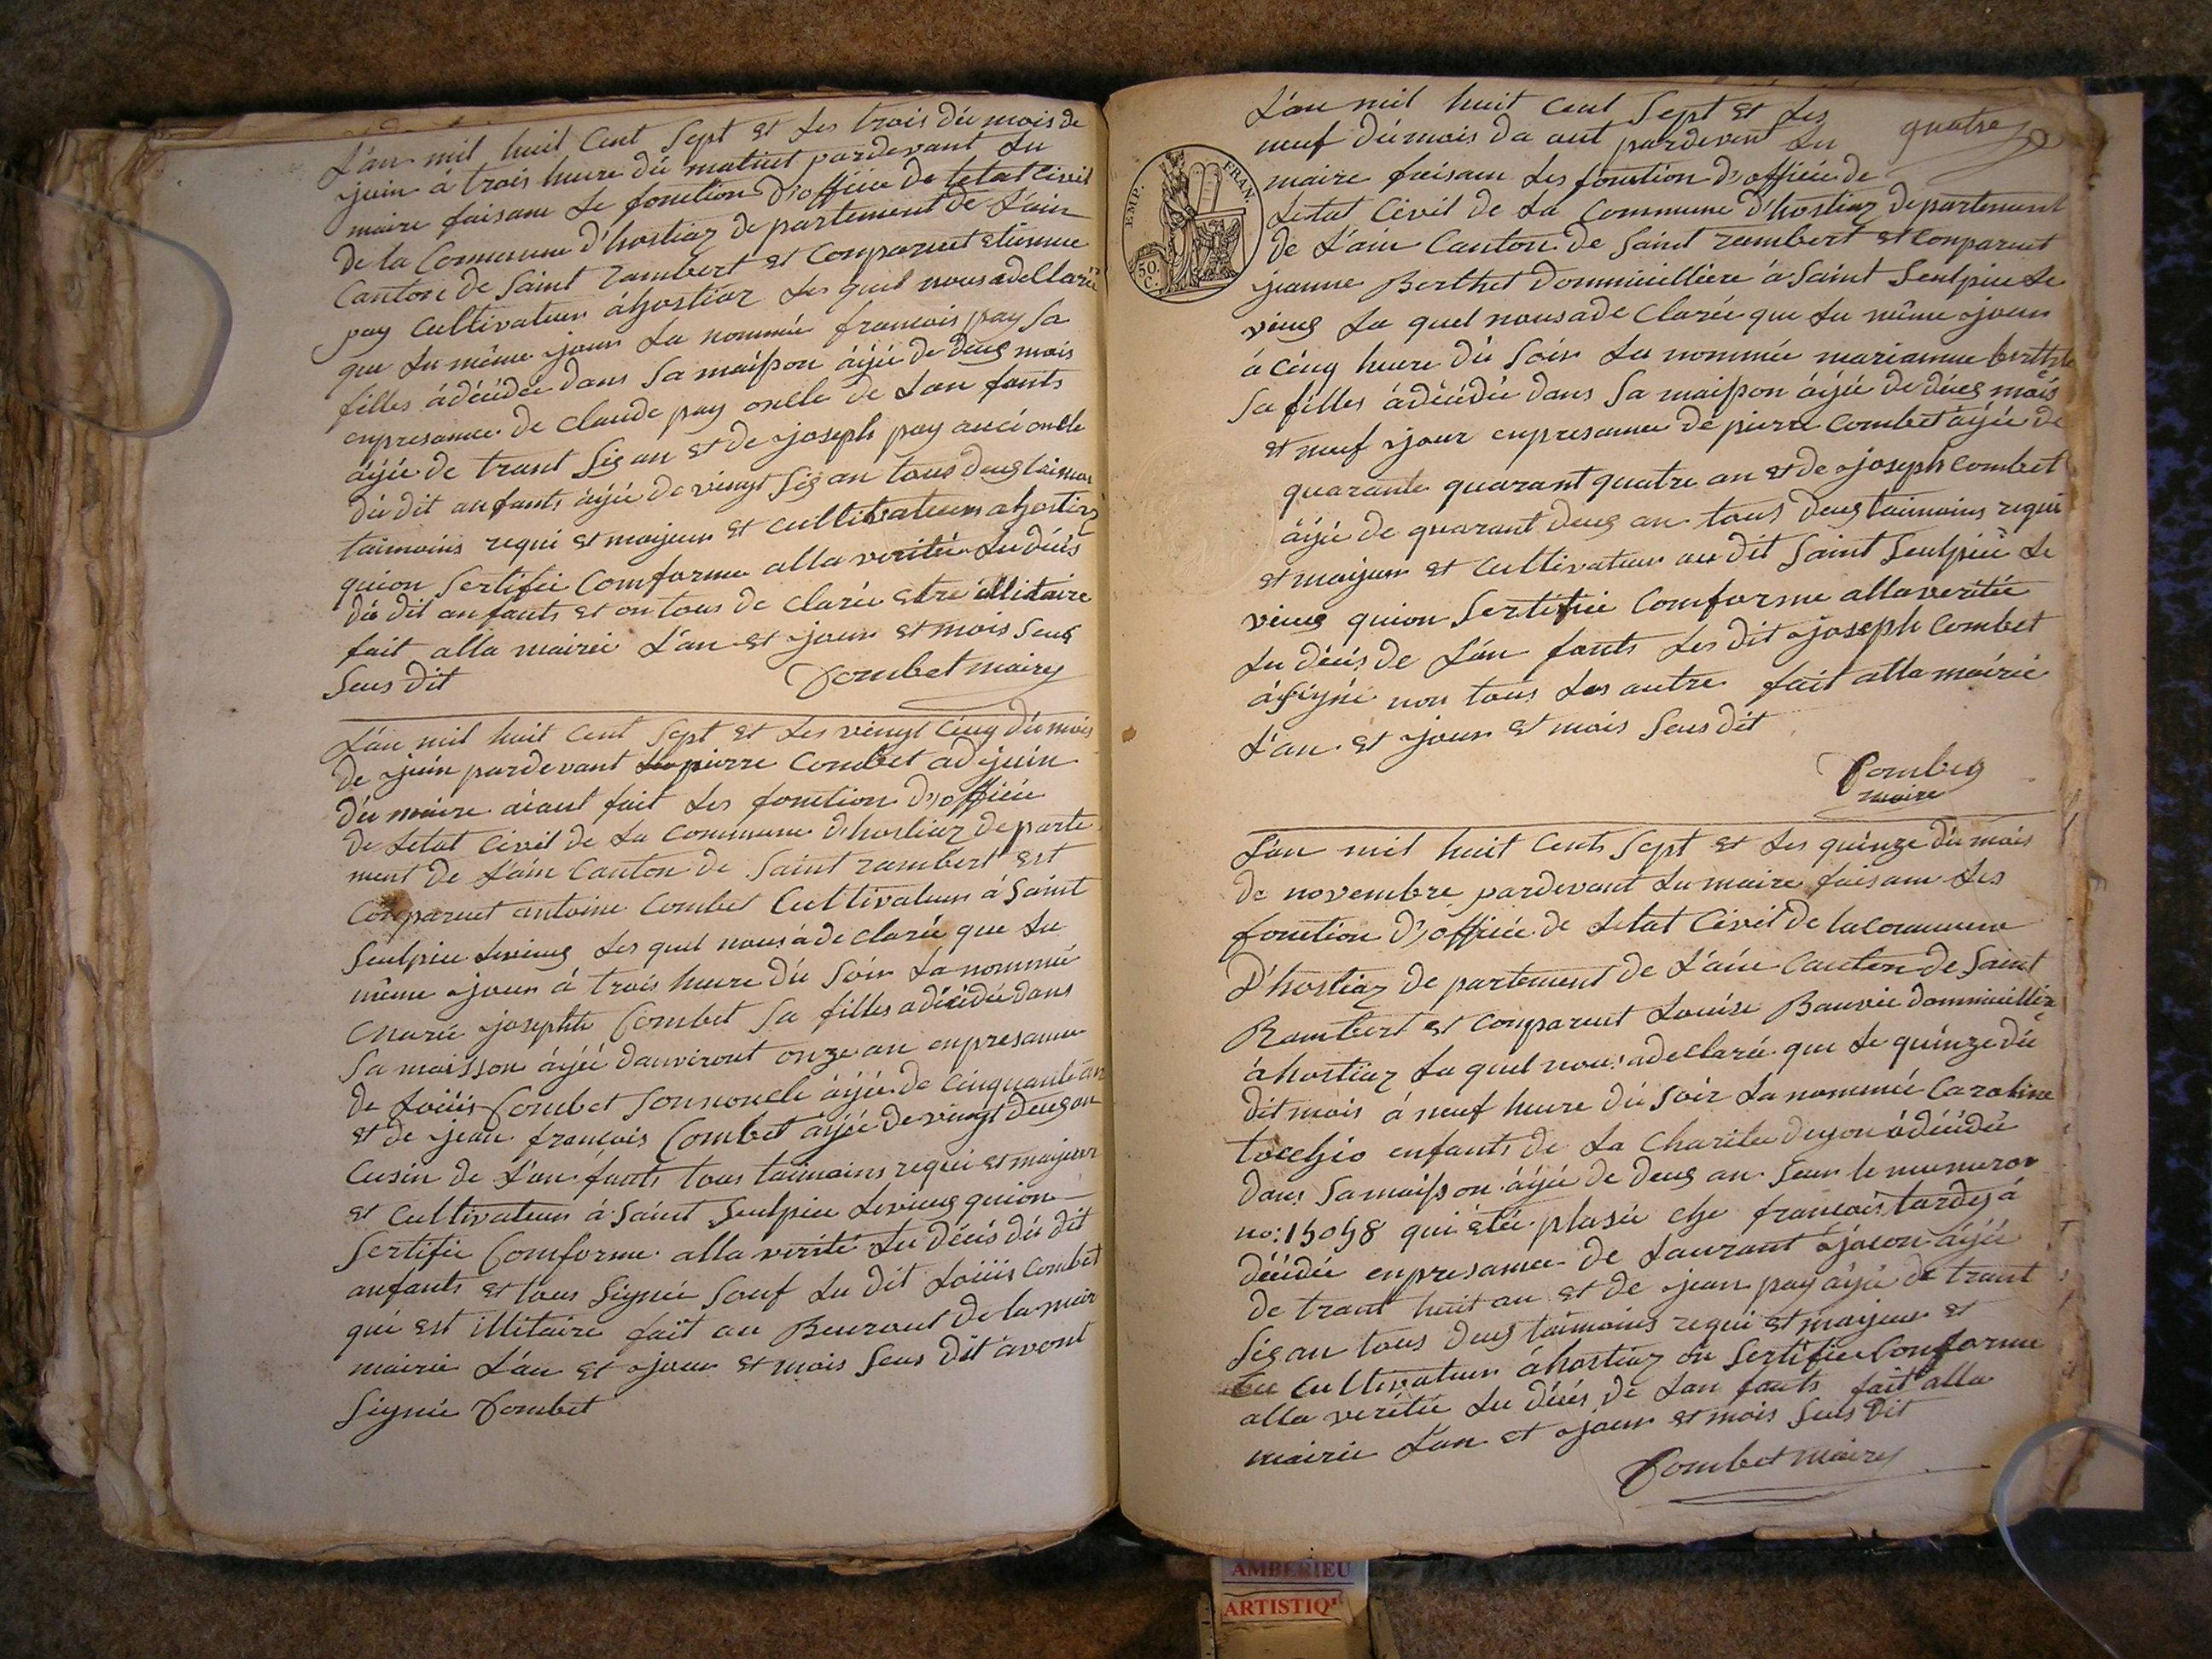 L'an mil huit Cent Sept et Les trois du mois de
juin à trois heure du matint pardevant Lu
maire faisam Le fonction D'officie de letat Civil
de la Commune d'hostiaz departement de L'ain
Canton de Saint rambert et Comparuet etienne
pay Cultivateur ahostiaz Les quel nous adeClarée
que Lu même jour La nommée francois pay Sa
filles adécédée dans Sa maison âjée de deus mois
enpresance de Claude pay oncle de Lan fants
âjée de trant Sis an et de joseph pay auci oncle
du dit anfants âjée de vingt Sis an tous deus
taimoins requi et majeur et Cultivateurs ahostiaz
quion Sertifie Comforme alla verité Lu décés
du dit anfants et on tous de clarée etre illitaire
fait alla mairie L'an et jour et mois Seus
Seus dit Combet maire
L'an mil huit Cent Sept et Les vingt Cinq du mois
de juin pardevant pierre Combet adjuin
du maire aiant fait Les fonction D'officie
de Letat Civil de La Commune d'hostiaz departe
ment de L'ain Canton de Saint rambert est
Comparuet antoine Combet Cultivateur à Saint
Seulpice Levieus Les quel nous a de clarée que Lu
même jour à trois heure du Soir La nommée
Marie josephte Combet Sa filles adécédée dans
Sa maisson âjée danviront onze an enpresance
de Loüis Combet Son noncle âjée de Cinquante an
et de jean françois Combet âjée de vingt deus an
Cusin de L'an fants tous taimoins requi et majeur
et Cultivateur à Saint Seulpice Levieus quion
Sertifie Comforme alla verité Lu décés du dit
anfants et tous Signée Souf Lu dit Loüis Combet
qui est illitaire fait au Beuraut de la mair
mairie L'an et jour et mois Seus dit avont
Signée Combet
quatre
EMP. FRAN.
50 C.
L'an mil huit Cent Sept et Les
neuf du mois da out pardevent Lu
maire faisam Les fonction D'officie de
Letat Civil de La Commune d'hostiaz departement
de L'ain Canton de Saint rambert et Comparuet
jeanne Berthet dommicillière à Saint Seulpice Le
vieus La quel nous a de Clarée que Lu même jour
à Cinq heure du Soir La nommée marianne berthet
Sa filles adécédée dans Sa maison âjée de deus mois
et neuf jour enpresance de pierre Combet âjée de
quarante quarant quatre an et de joseph Combet
âjée de quarant deus an tous deus taimoins requi
et majeur et Cultivateur au dit Saint Seulpice Le
vieus quion Sertifie Comforme alla veritée
Lu décés de L'an fants Les dit joseph Combet
a Signé non tous Les autre fait alla mairie
L'an et jour et mois Seus dit
Combet
maire
L'an mil huit Cents Sept et Les quinze du mois
de novembre pardevant Lu maire faisam Les
fonction D'officie de Letat Civil de la Commune
D'hostiaz departement de L'ain Canton de Saint
Rambert et Comparuet Louise Bauvie dommicillière
à hostiaz La quel nous adeclarée que Le quinze du
dit mois à neuf heure du Soir La nommée Caroline
tocchio enfants de La Charite deyon adécédée
dans Sa maison âjée de deus an Seur le numuror
no: 15058 qui étée plasée che francois tardy à
décédée enpresance de Laurant âjée
de trant huit an et de jean pay âjée de trant
Sis an tous deus taimoins requi et majeur et
Cultivateur à hostiaz on Sertifie Comforme
alla veritée Lu décés de Lan fants fait alla
mairie L'an et jour et mois Seus dit
Combet maire
AMBERIEU
ARTISTIQ